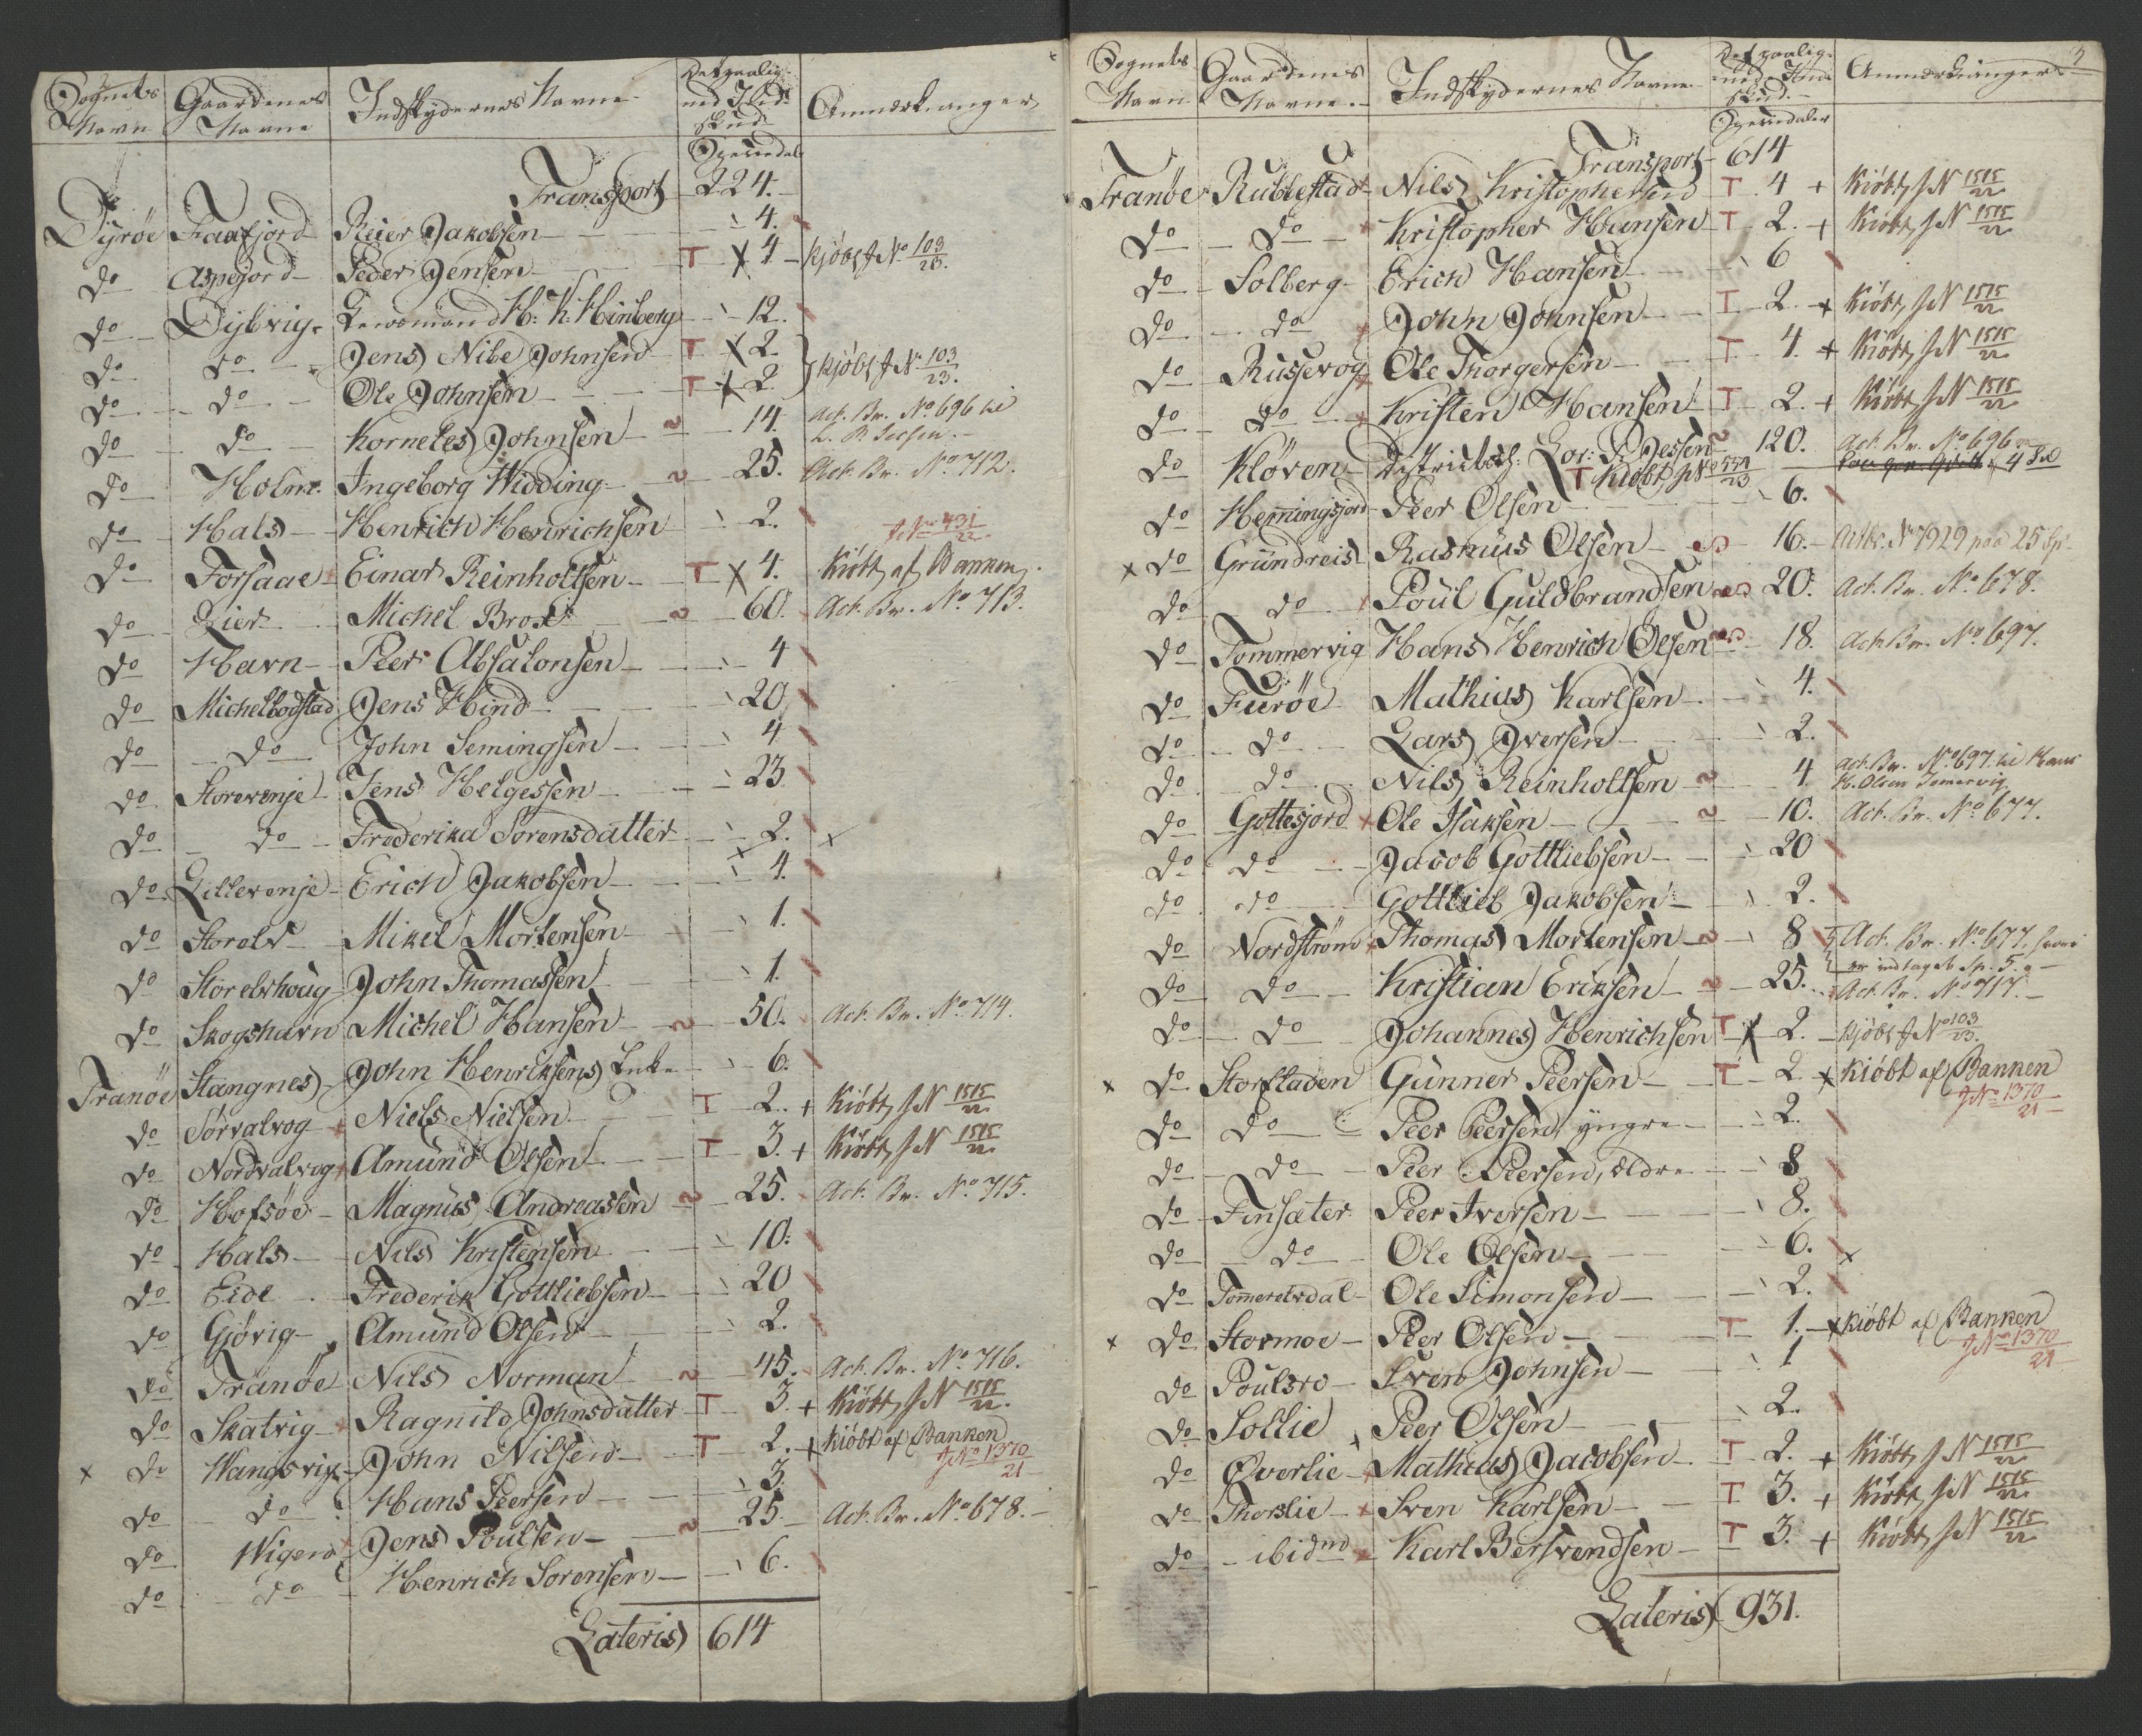 Sognets Navn | Gaardenes Navne | Indskydernes Navne | Det paalignede Indskud | Anmærkninger
Speciedaler
Transport 224.
Dyröe Faaxfjord Reier Jakobsen 4.
do Aspefjord Peder Jensen T x 4 kjöbt J No 103/23.
do Dybvig H: K: Hinberg 12.
do do Jens Nibe Johnsen T x 2. } kjöbt J No 103/23.
do do Ole Johnsen T x 2
do do Korneles Johnsen 14. Act. Br. No 696 til
do Holm Ingeborg Widding 25. Act. Br. No 712.
do Hals Henrich Henrichsen 2. J No 431/22
do Forsaae Einar Reinholtsen T x 4. Kiöbt af Banken.
do Lier Michel Brox 60. Act. Br. No 713.
do Havn Peer Absalonsen 4
do Michelbodstad Jens Hind 20
do do John Semingsen 4
do Storevenje Jens Helgessen 23
do do Frederika Sörensdatter 2. x
do Lillevenje Erich Jakobsen 4.
do Storelv Mikel Mortensen 1.
do Storelvhoug John Thomassen 1.
do Skogshavn Michel Hansen 50. Act. Br. No 714.
Tranöe Stangnes John Henriksens Enke 6.
do Sörvalvog Niels Nielsen T 2. + Kiöbt J N 1515/22
do Nordvalvog Amund Olsen T 3. + Kiöbt J N 1515/22
do Hofsöe Magnus Andreassen 25. Act. Br. No 715.
do Hals Nils Kristensen 10.
do Eide Frederik Gottliebsen 20
do Gjövig Amund Olsen 2.
do Tranöe Nils Norman 45. Act. Br. No 716.
do Skatvig Ragnild Johnsdatter T 3. + Kiöbt J N 1515/22.
x do Wangsvig John Nilsen T 2. + kiöbt af Banken J No 1370/21
do do Hans Peersen 3.
do Wigen Jens Poulsen 25. Act. Br. No 678.
do do Henrich Sörensen 6.
Lateris 614
Sognets Navn | Gaardenes Navne. | Indskydernes Navne | Det paalignede Indskud. | Anmærkninger
Speciedaler
Transport 614
Tranöe Rubbestad Nils Kristophersen T 4 + Kiöbt J N 1515/22
do do Kristopher Hansen T 2. + Kiöbt J N 1515/22
do Solberg Erich Hansen 6
do do John Johnsen T 2. + Kiöbt J N 1515/22
do Russevog Ole Thorgersen T 4. + Kiöbt J N 1515/22
do do Kristen Hansen T 2. + Kiöbt J N 1515/22
do Klöven Lor: P. Jessen 120. Act. Br. No 696
T Kiöbt J No 551/23
do Hemingsjord Peer Olsen 6.
x do Grundreis Rasmus Olsen 16. Actbr. No 1929 paa 25 Sp
do do Poul Guldbrandsen 20. Act. Br. No 678.
do Tommervig Hans Henrich Olsen 18. Act. Br. No 697.
do Furöe Mathias Karlsen 4.
do do Lars Iversen 2.
do do Nils Reinholtsen 4 Act. Br. No 697. til Hans
H. Olsen Tomervig
do Gottesjord Ole Isaksen 10. Act. Br. No 677.
do do Jacob Gottliebsen 20
do do Gottlieb Jakobsen 2.
do Nordström Thomas Mortensen 8 Act. Br. No 677,
er indtaget Sp. 5.
do do Kristian Eriksen 25. Act. Br. No 717.
do do Johannes Henrichsen T x 2. kjöbt J No 103/23.
x do Storstaden Gunner Peersen T 2. x Kiöbt af Banken J No 1370/21
do do Peer Peersen, yngre 2.
do do Peer Peersen, ældre 8
do Finsæter Peer Iversen 8.
do do Ole Olsen 6. x
do Tomerelvdal Ole Simonsen 2.
x do Stormoe Peer Olsen T 1. x Kiöbt af Banken J No 1370/21
do Poulsro Sven Johnsen 1
do Sollie Peer Olsen 2.
do Överlie Mathias Jacobsen T 2. + Kiöbt J N 1515/22
do Thorslie Sven Karlsen T 3. + Kiöbt J N 1515/22.
do ibidm Karl Bersvendsen T 3. + Kiöbt J N 1515/22
Lateris 931.